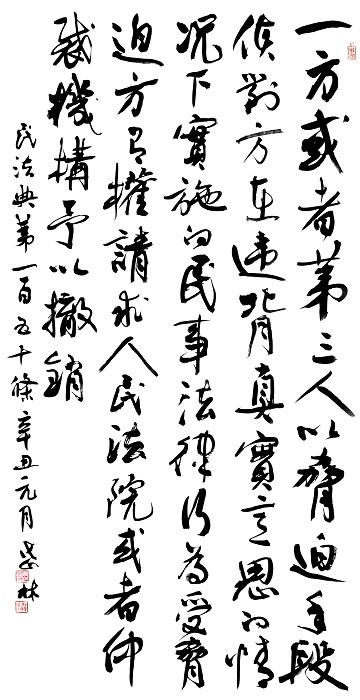 一方或者第三人以脅迫手段
使對方在违背真實意思的情
况下實施的民事法律行為受脅
迫方有權請求人民法院或者仲
裁機構予以撤銷
民法典第一百五十條辛丑元月
林